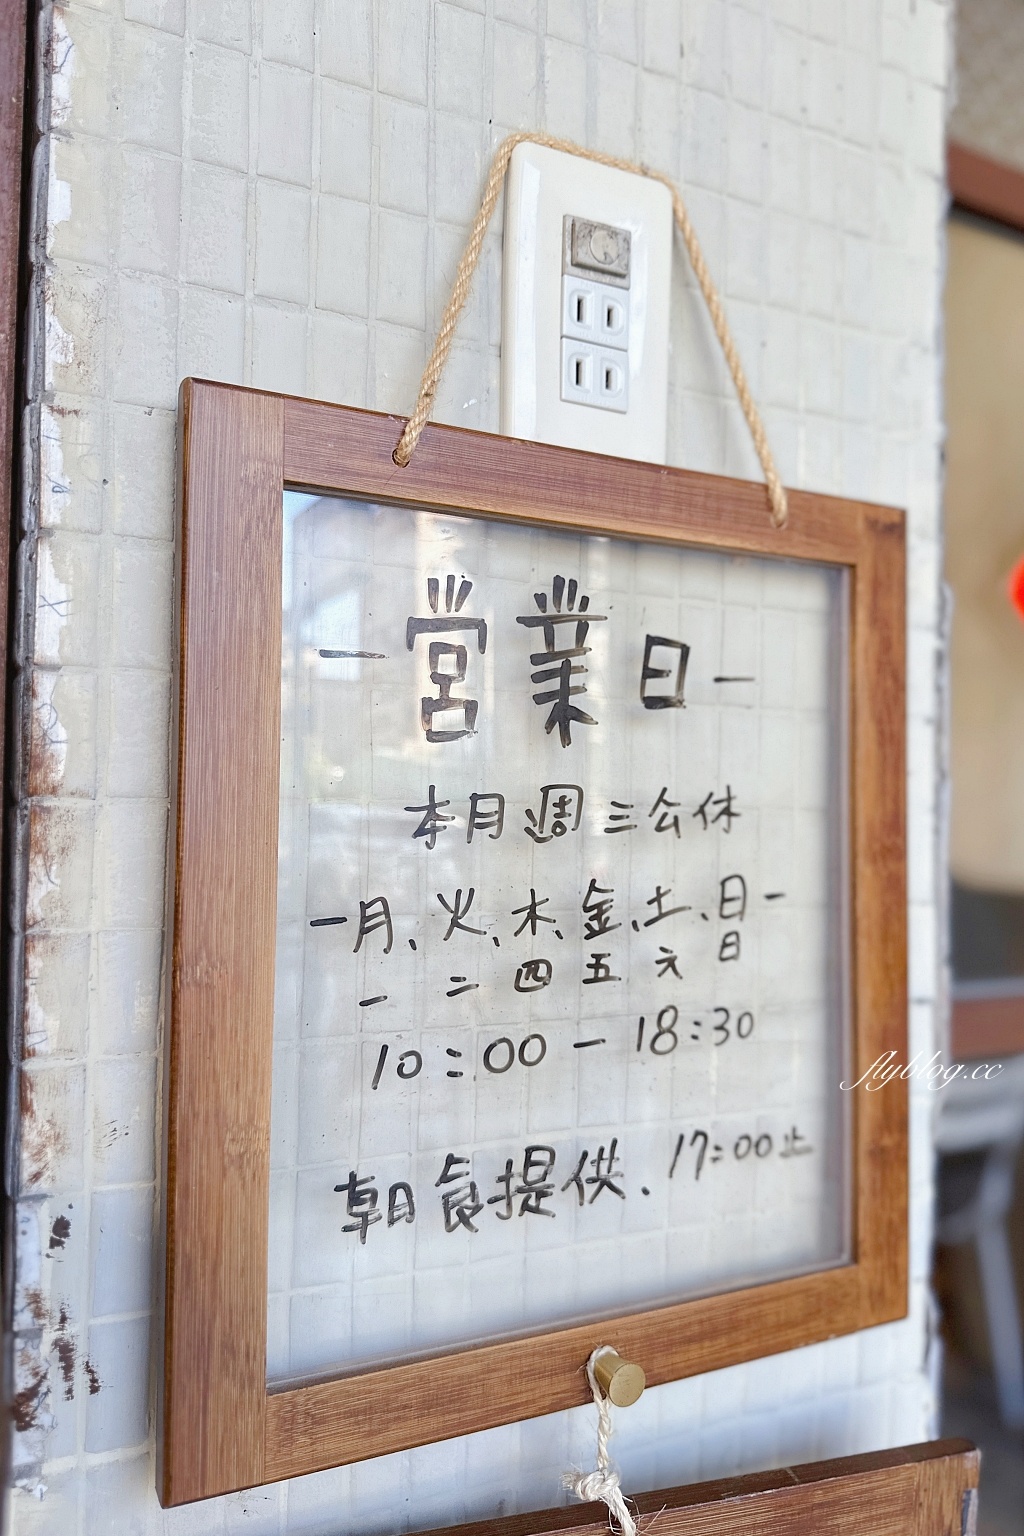 一營業日一
本月週三公休
一月、火、木、金、土、日一
一 二 四 五 六 日
10:00 - 18:30
朝食提供. 17:00止
flyblog.cc